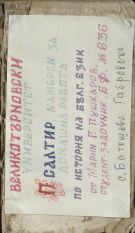 ВЕЛИКОТЪРНОВСКИ
УНИВЕРСИТЕТ
ПСАЛТИР, КАМБРЕН ЗА
ДОМАШНА РАБОТА
ПО ИСТОРИЯ НА БЪЛГ. ЕЗИК
ОТ МАРИН Г. ПУШКАРОВ,
СТУДЕНТ-ЗАДОЧНИК Б.Ф. № 636
с. Батошево Габровски